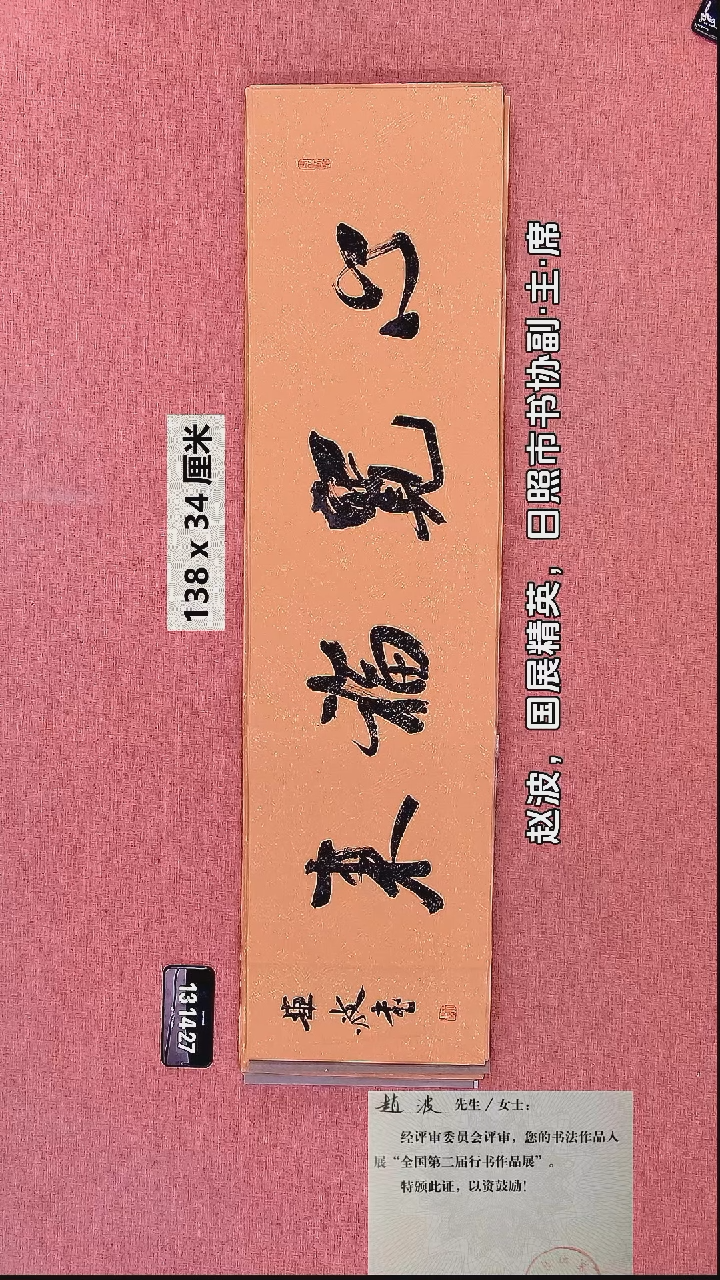 138 x 34 厘米
心寬福来
趙波書
赵波，国展精英，日照市书协副·主·席
13:14:27
趙波 先生/女士：
经评审委员会评审，您的书法作品入
展“全国第二届行书作品展”。
特颁此证，以资鼓励！